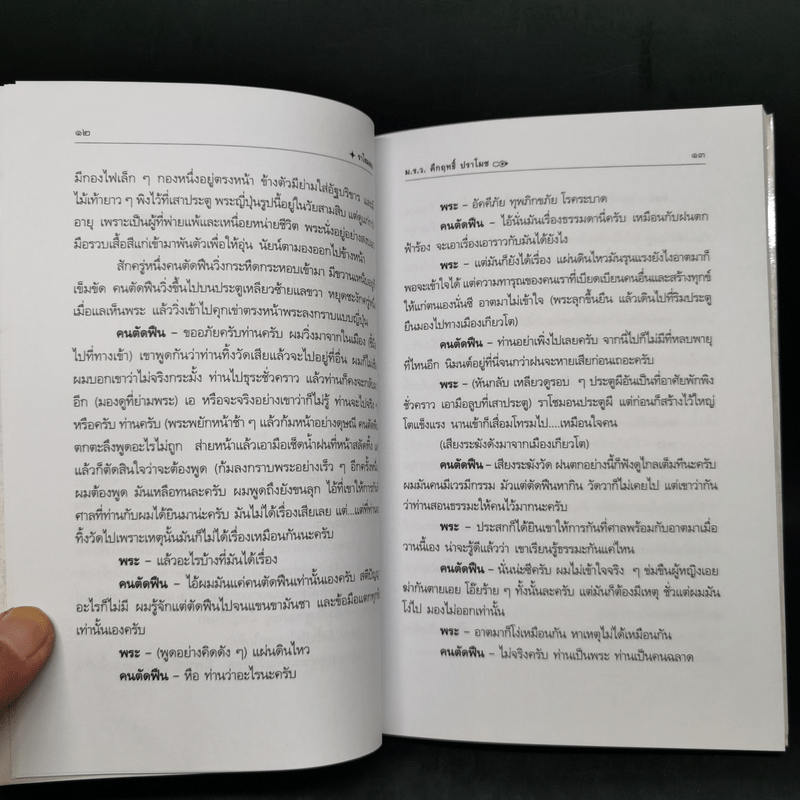 ๑๒
มีกองไฟเล็ก ๆ กองหนึ่งอยู่ตรงหน้า ข้างตัวมีย่ามใส่อัฐบริขาร และมี
ไม้เท้ายาว ๆ พิงไว้ที่เสาประตู พระญี่ปุ่นรูปนี้อยู่ในวัยสามสิบ แต่ดูแก่กว่า
อายุ เพราะเป็นผู้ที่พ่ายแพ้และเหนื่อยหน่ายชีวิต พระนั่งอยู่อย่างสงบ
มือรวบเสื้อสีแก่เข้ามาพันตัวเพื่อให้อุ่น นัยน์ตามองออกไปข้างหน้า
สักครู่หนึ่งคนตัดฟืนวิ่งกระหืดกระหอบเข้ามา มีขวานเหน็บอยู่ที่
เข็มขัด คนตัดฟืนวิ่งขึ้นไปบนประตูเหลียวซ้ายแลขวา หยุดชะงักครู่หนึ่ง
เมื่อแลเห็นพระ แล้ววิ่งเข้าไปคุกเข่าตรงหน้าพระลงกราบแบบญี่ปุ่น
คนตัดฟืน – ขออภัยครับท่านครับ ผมวิ่งมาจากในเมือง (ชี้มือ
ไปที่ทางเข้า) เขาพูดกันว่าท่านทิ้งวัดเสียแล้วจะไปอยู่ที่อื่น ผมก็ไม่เชื่อ
ผมบอกเขาว่าไม่จริงกระมั้ง ท่านไปธุระชั่วคราว แล้วท่านก็คงจะกลับมา
อีก (มองดูที่ย่ามพระ) เอ หรือจะจริงอย่างเขาว่าก็ไม่รู้ ท่านจะไปจริง ๆ
หรือครับ ท่านครับ (พระพยักหน้าช้า ๆ แล้วก้มหน้าอย่างดุษณี คนตัดฟืน
ตกตะลึงพูดอะไรไม่ถูก ส่ายหน้าแล้วเอามือเช็ดน้ำฝนที่หน้าสลัดทิ้ง
แล้วก็ตัดสินใจว่าจะต้องพูด (ก้มลงกราบพระอย่างเร็ว ๆ อีกครั้งหนึ่ง)
ผมต้องพูด มันเหลือทนละครับ ผมพูดถึงยังขนลุก ไอ้ที่เขาให้การกันที่
ศาลที่ท่านกับผมได้ยินมาน่ะครับ มันไม่ได้เรื่องเสียเลย แต่...แต่ที่ท่าน
ทิ้งวัดไปเพราะเหตุนั้นมันก็ไม่ได้เรื่องเหมือนกันนะครับ
พระ – แล้วอะไรบ้างที่มันได้เรื่อง
คนตัดฟืน – ไอ้ผมมันแค่คนตัดฟืนเท่านั้นเองครับ สติปัญญา
อะไรก็ไม่มี ผมรู้จักแต่ตัดฟืนไปจนแขนขามันชา และข้อมือแตกทุกข้อ
เท่านั้นเองครับ
พระ – (พูดอย่างคิดดัง ๆ) แผ่นดินไหว
คนตัดฟืน – หือ ท่านว่าอะไรนะครับ
ม.ร.ว. คึกฤทธิ์ ปราโมช
๑๓
พระ – อัคคีภัย ทุพภิกขภัย โรคระบาด
คนตัดฟืน – ไอ้นั่นมันเรื่องธรรมดานี่ครับ เหมือนกับฝนตก
ฟ้าร้อง จะเอาเรื่องเอาราวกับมันได้ยังไง
พระ – แต่มันก็ยังได้เรื่อง แผ่นดินไหวมันรุนแรงยังไงอาตมาก็
พอจะเข้าใจได้ แต่ความทารุณของคนเราที่เบียดเบียนคนอื่นและสร้างทุกข์
ให้แก่ตนเองนั่นซี อาตมาไม่เข้าใจ (พระลุกขึ้นยืน แล้วเดินไปที่ริมประตู
ยืนมองไปทางเมืองเกียวโต)
คนตัดฟืน – ท่านอย่าเพิ่งไปเลยครับ จากนี่ไปก็ไม่มีที่หลบพายุ
ที่ไหนอีก นิมนต์อยู่ที่นี่จนกว่าฝนจะหายเสียก่อนเถอะครับ
พระ – (หันกลับ เหลียวดูรอบ ๆ ประตูผีอันเป็นที่อาศัยพักพิง
ชั่วคราว เอามือลูบที่เสาประตู) ราโชมอนประตูผี แต่ก่อนก็สร้างไว้ใหญ่
โตแข็งแรง นานเข้าก็เสื่อมโทรมไป....เหมือนใจคน
(เสียงระฆังดังมาจากเมืองเกียวโต)
คนตัดฟืน – เสียงระฆังวัด ฝนตกอย่างนี้ก็ฟังดูไกลเต็มทีนะครับ
ผมมันคนมีเวรมีกรรม มัวแต่ตัดฟืนหากิน วัดวาก็ไม่เคยไป แต่เขาว่ากัน
ว่าท่านสอนธรรมะให้คนไว้มากนะครับ
พระ – ประสกก็ได้ยินเขาให้การกันที่ศาลพร้อมกับอาตมาเมื่อ
วานนี้เอง น่าจะรู้ดีแล้วว่า เขาเรียนรู้ธรรมะกันแค่ไหน
คนตัดฟืน – นั่นน่ะซีครับ ผมไม่เข้าใจจริง ๆ ข่มขืนผู้หญิงเอย
ฆ่ากันตายเอย โอ๊ยร้าย ๆ ทั้งนั้นละครับ แต่มันก็ต้องมีเหตุ ชั่วแต่ผมมัน
โง่ไป มองไม่ออกเท่านั้น
พระ – อาตมาก็โง่เหมือนกัน หาเหตุไม่ได้เหมือนกัน
คนตัดฟืน – ไม่จริงครับ ท่านเป็นพระ ท่านเป็นคนฉลาด